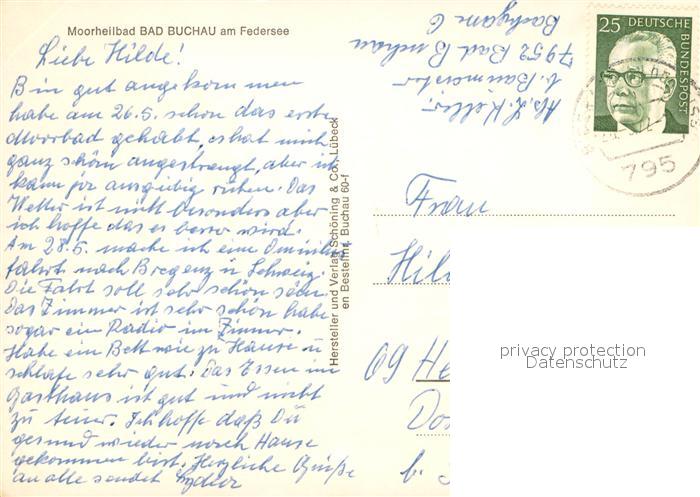 Moorheilbad BAD BUCHAU am Federsee
Liebe Hilde!
Bin gut angekommen
habe am 26.5. schon das erste
Moorbad gehabt, es hat mich
ganz schön angestrengt, aber ich
kann ja ausgiebig ruhen. Das
Wetter ist nicht besonders aber
ich hoffe das es besser wird.
Am 28.5. mache ich eine Omnibus
fahrt nach Bregenz u Schweiz.
Die Fahrt soll sehr schön sein.
Das Zimmer ist sehr schön habe
sogar ein Radio im Zimmer.
Habe ein Bett wie zu Hause u
schlafe sehr gut. Das Essen im
Gasthaus ist gut und nicht
zu teuer. Ich hoffe daß Du
gesund wieder nach Hause
gekommen bist. Herzliche Grüße
an alle sendet
Hersteller und Verlag Schöning & Co., Lübeck
en Bestell-Nr. Buchau 60-f
Abs. L. Keller
b. Baumeister
7952 Bad Buchau
6
25 DEUTSCHE BUNDESPOST
795
Frau
Hil
69 He
Do
b.
privacy protection
Datenschutz